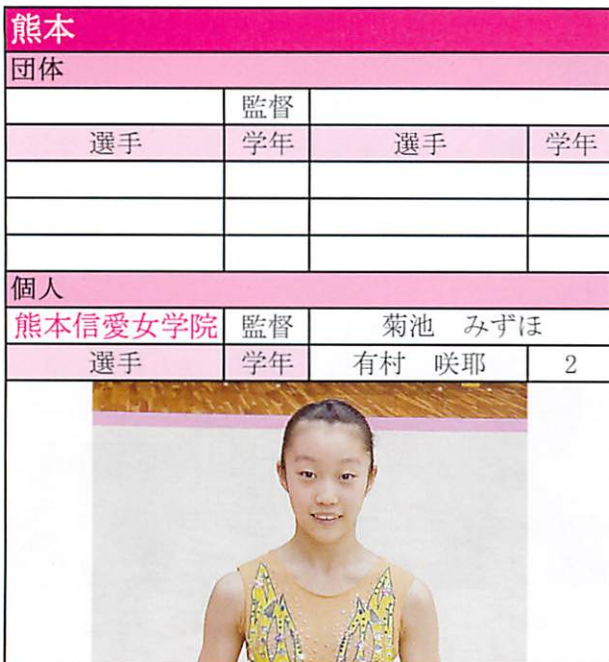 熊本
団体
監督
選手 学年 選手 学年
個人
熊本信愛女学院 監督 菊池 みずほ
選手 学年 有村 咲耶 2